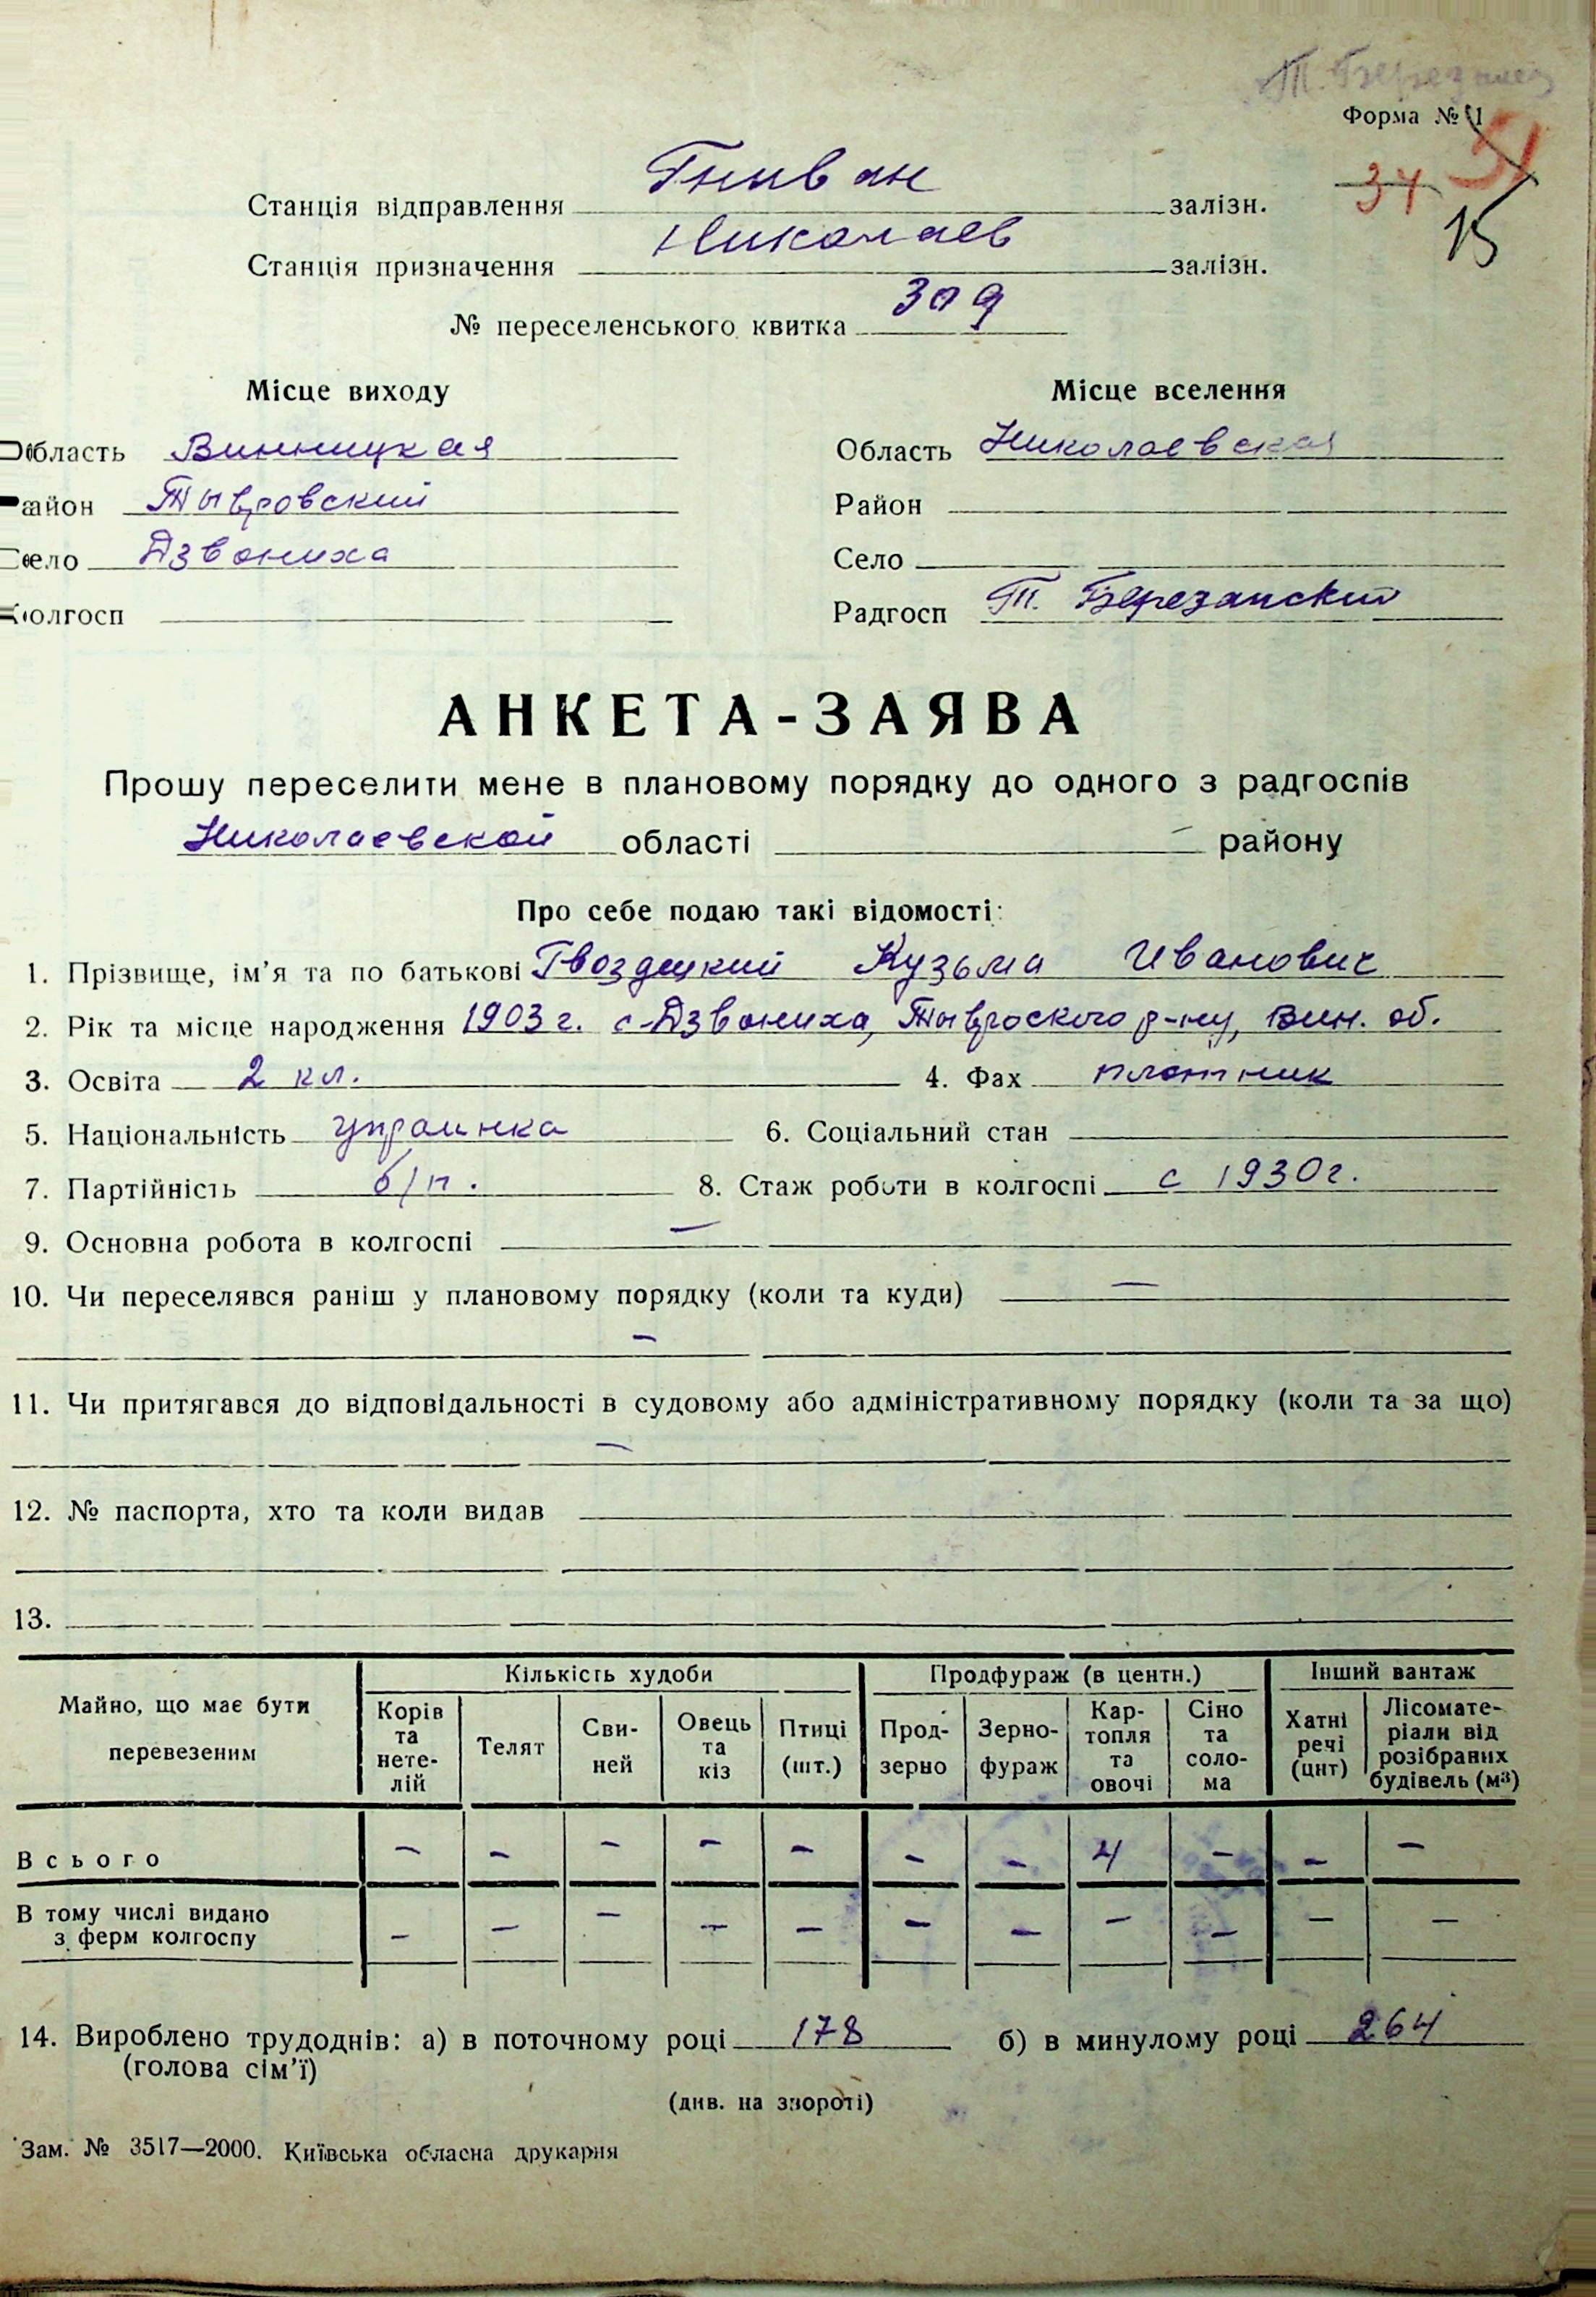 Т. Березанск
Форма № 1
51
34
15
Станція відправлення Гнивань залізн.
Станція призначення Николаев залізн.
№ переселенського квитка 309
Місце виходу
Місце вселення
Область Винницкая
Область Николаевская
Район Тывровский
Район
Село Дзвониха
Село
Колгосп
Радгосп Т. Березанский
АНКЕТА-ЗАЯВА
Прошу переселити мене в плановому порядку до одного з радгоспів
Николаевской області — району
Про себе подаю такі відомості:
1. Прізвище, ім'я та по батькові Гвоздецкий Кузьма Иванович
2. Рік та місце народження 1903 г. с-Дзвониха, Тывроского р-ну, Вин. об.
3. Освіта 2 кл. 4. Фах плотник
5. Національність украинка 6. Соціальний стан
7. Партійність б/п. 8. Стаж роботи в колгоспі с 1930 г.
9. Основна робота в колгоспі —
10. Чи переселявся раніш у плановому порядку (коли та куди) —
—
11. Чи притягався до відповідальності в судовому або адміністративному порядку (коли та за що)
—
12. № паспорта, хто та коли видав
13.
Майно, що має бути перевезеним
Кількість худоби
Продфураж (в центн.)
Інший вантаж
Корів та нетелій
Телят
Свиней
Овець та кіз
Птиці (шт.)
Продзерно
Зернофураж
Картопля та овочі
Сіно та солома
Хатні речі (цнт)
Лісоматеріали від розібраних будівель (м³)
Всього — — — — — — — 4 — — —
В тому числі видано з ферм колгоспу — — — — — — — — — — —
14. Вироблено трудоднів: а) в поточному році 178 б) в минулому році 264
(голова сім'ї)
(див. на звороті)
Зам. № 3517—2000. Київська обласна друкарня